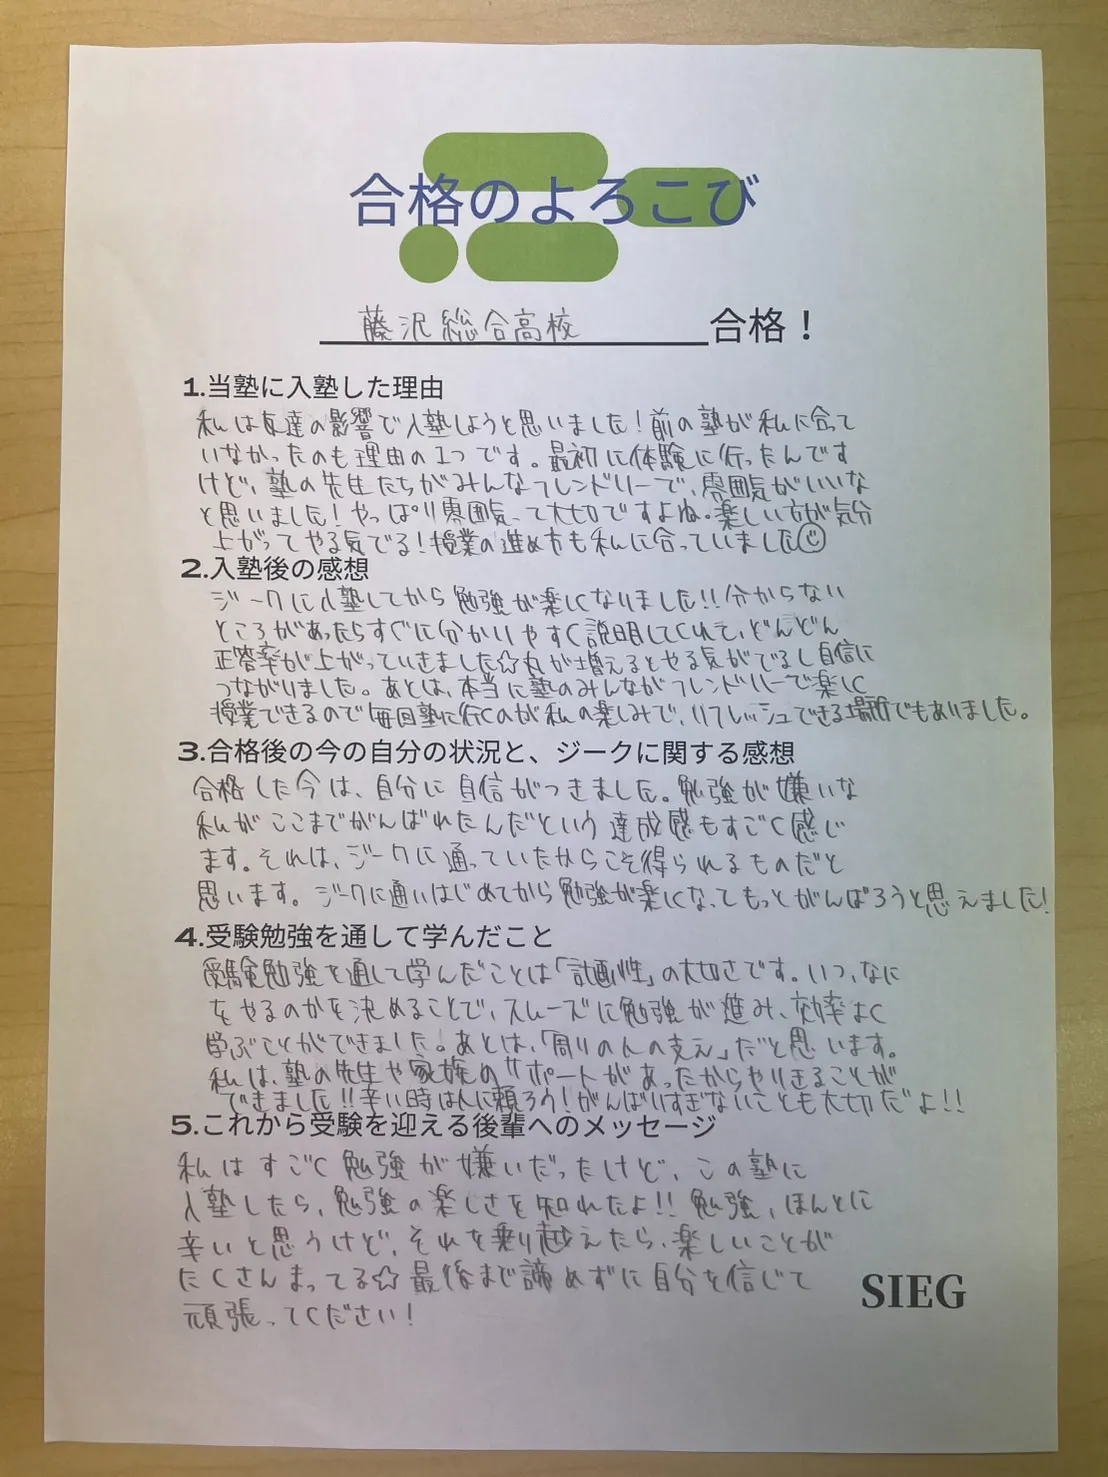 合格のよろこび
藤沢総合高校 合格！
1.当塾に入塾した理由
私は友達の影響で入塾しようと思いました！前の塾が私に合って
いなかったのも理由の1つです。最初に体験に行ったんです
けど、塾の先生たちがみんなフレンドリーで、雰囲気がいいな
と思いました！やっぱり雰囲気って大切ですよね。楽しい方が気分
上がってやる気でる！授業の進め方も私に合っていました☺
2.入塾後の感想
ジークに入塾してから勉強が楽しくなりました!!分からない
ところがあったらすぐに分かりやすく説明してくれて、どんどん
正答率が上がっていきました☆丸が増えるとやる気がでるし自信に
つながりました。あとは、本当に塾のみんながフレンドリーで楽しく
授業できるので毎回塾に行くのが私の楽しみで、リフレッシュできる場所でもありました。
3.合格後の今の自分の状況と、ジークに関する感想
合格した今は、自分に自信がつきました。勉強が嫌いな
私がここまでがんばれたんだという達成感もすごく感じ
ます。それは、ジークに通っていたからこそ得られるものだと
思います。ジークに通いはじめてから勉強が楽しくなってもっとがんばろうと思えました！
4.受験勉強を通して学んだこと
受験勉強を通して学んだことは「計画性」の大切さです。いつ、なに
をやるのかを決めることで、スムーズに勉強が進み、効率よく
学ぶことができました。あとは、「周りの人の支え」だと思います。
私は、塾の先生や家族のサポートがあったからやりきることが
できました!!辛い時は人に頼ろう！がんばりすぎないことも大切だよ!!
5.これから受験を迎える後輩へのメッセージ
私はすごく勉強が嫌いだったけど、この塾に
入塾したら、勉強の楽しさを知れたよ!!勉強、ほんとに
辛いと思うけど、それを乗り越えたら、楽しいことが
たくさんまってる☆最後まで諦めずに自分を信じて
頑張ってください！
SIEG